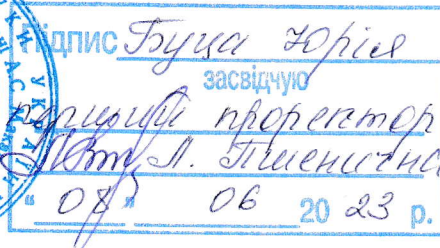 Підпис Буца Юрія
засвідчую
перший проректор
Л. Пшенична
"08" 06 2023 р.